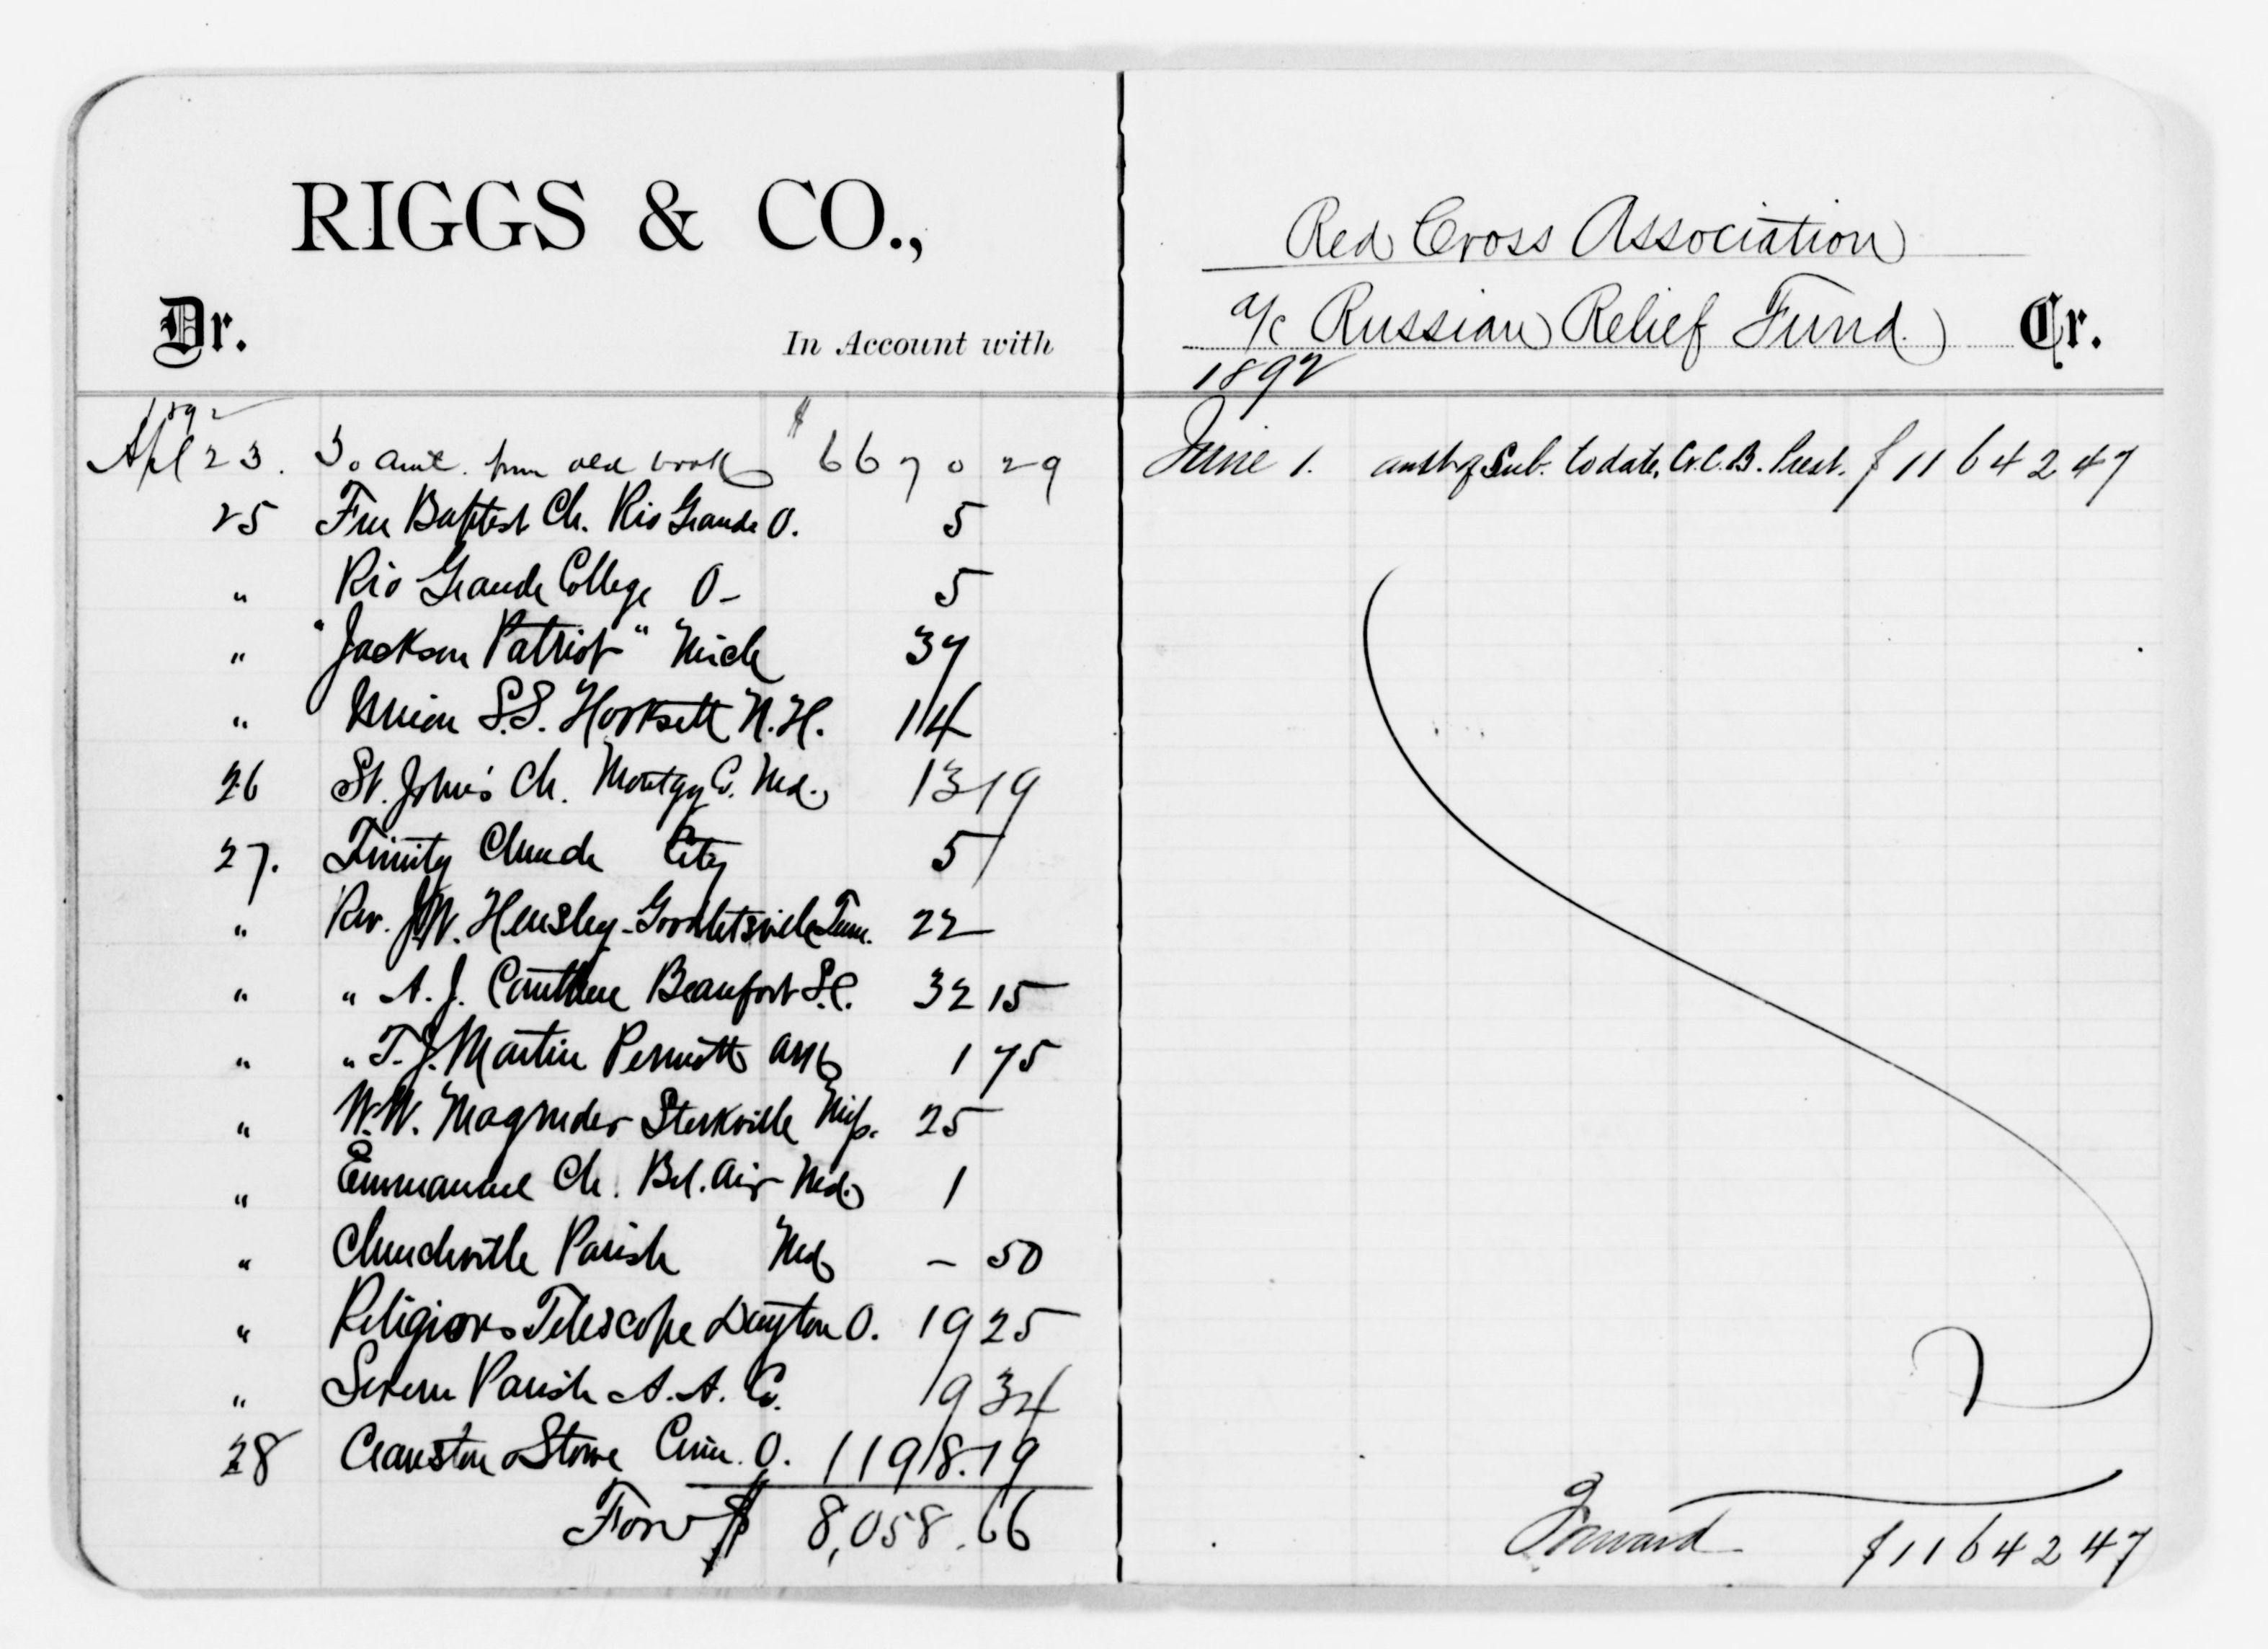 RIGGS & CO.,
Dr.
In Account with
1892
Apl 23. To amt. from old book $6670 29
25 Free Baptist Ch. Rio Grande O. 5
" Rio Grande College O- 5
" "Jackson Patriot" Mich 37
" Union S.S. Hooksett N.H. 14
26 St. John's Ch. Montgy Co. Md. 13 19
27. Trinity Church City 5
" Rev. J.W. Hensley-Goodletsville Tenn. 22
" " A. J. Beaufort S.C. 32 15
" " T. J. Martin Ark 1 75
" W.W. Magruder Starkville Miss. 25
" Emmanuel Ch. Bel. Air Md. 1
" Churchville Parish Md - 50
" Religious Telescope Dayton O. 19 25
" Severn Parish A. A. Co. 9 34
28 Cranston & Stowe Cinn. O. 1198.19
Forw $ 8,058.66
Red Cross Association
a/c Russian Relief Fund. Cr.
1892
June 1. amt of Sub. to date, Cr. C. B. Prest. $11642 47
Forward $11642 47